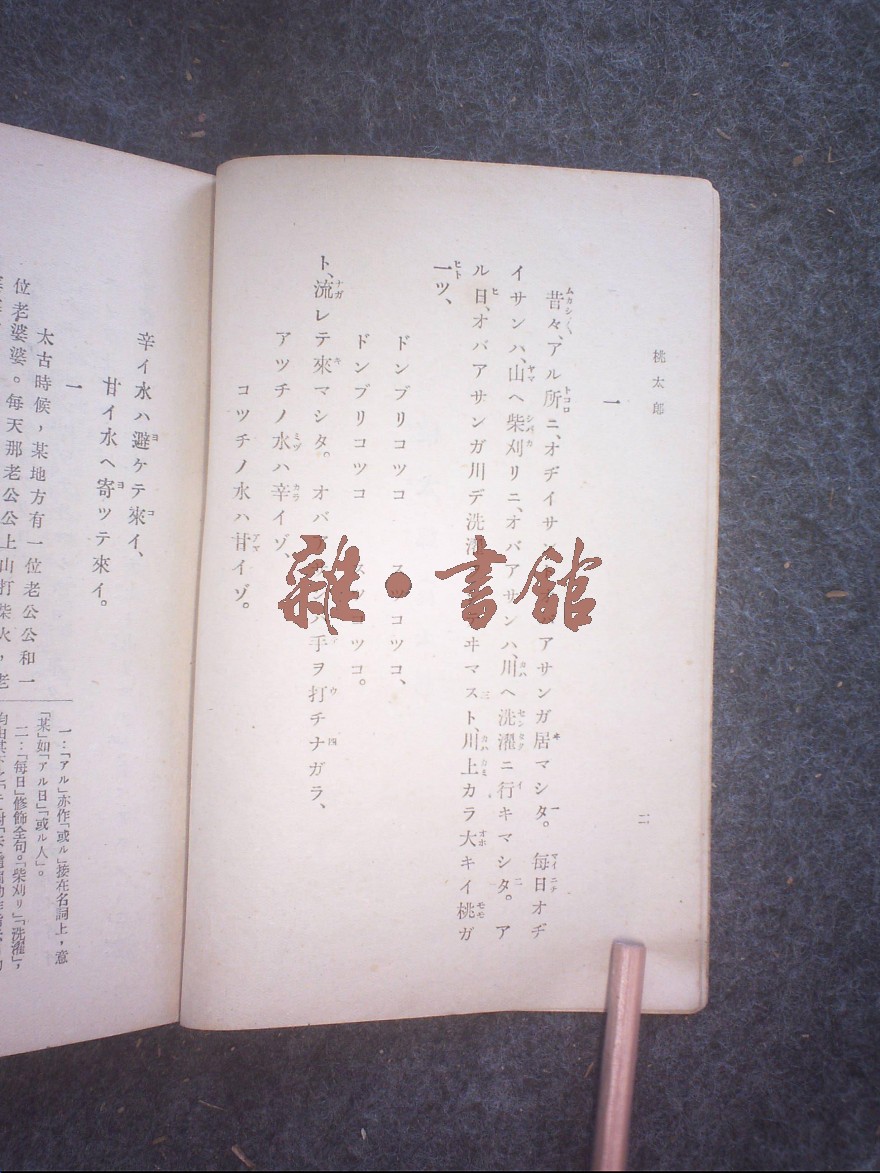 桃太郎
二
一
昔々、アル所ニ、オヂイサン アサンガ居マシタ。 每日オヂ
イサンハ、山ヘ柴刈リニ、オバアサンハ、川ヘ洗濯ニ行キマシタ。 ア
ル日、オバアサンガ川デ洗濯 ヰマスト、川上カラ大キイ桃ガ
一ツ、
ドンブリコツコ スツコツコ、
ドンブリコツコ スツコツコ。
ト、流レテ來マシタ。 オバアサンハ手ヲ打チナガラ、
アツチノ水ハ辛イゾ、
コツチノ水ハ甘イゾ。
辛イ水ハ避ケテ來イ、
甘イ水ヘ寄ツテ來イ。
一
太古時候，某地方有一位老公公和一
位老婆婆。每天那老公公上山打柴火，老
一：「アル」亦作「或ル」接在名詞上，意
「某」如「アル日」「或ル人」。
二：「每日」修飾全句。「柴刈リ」「洗濯」，
雜·書館